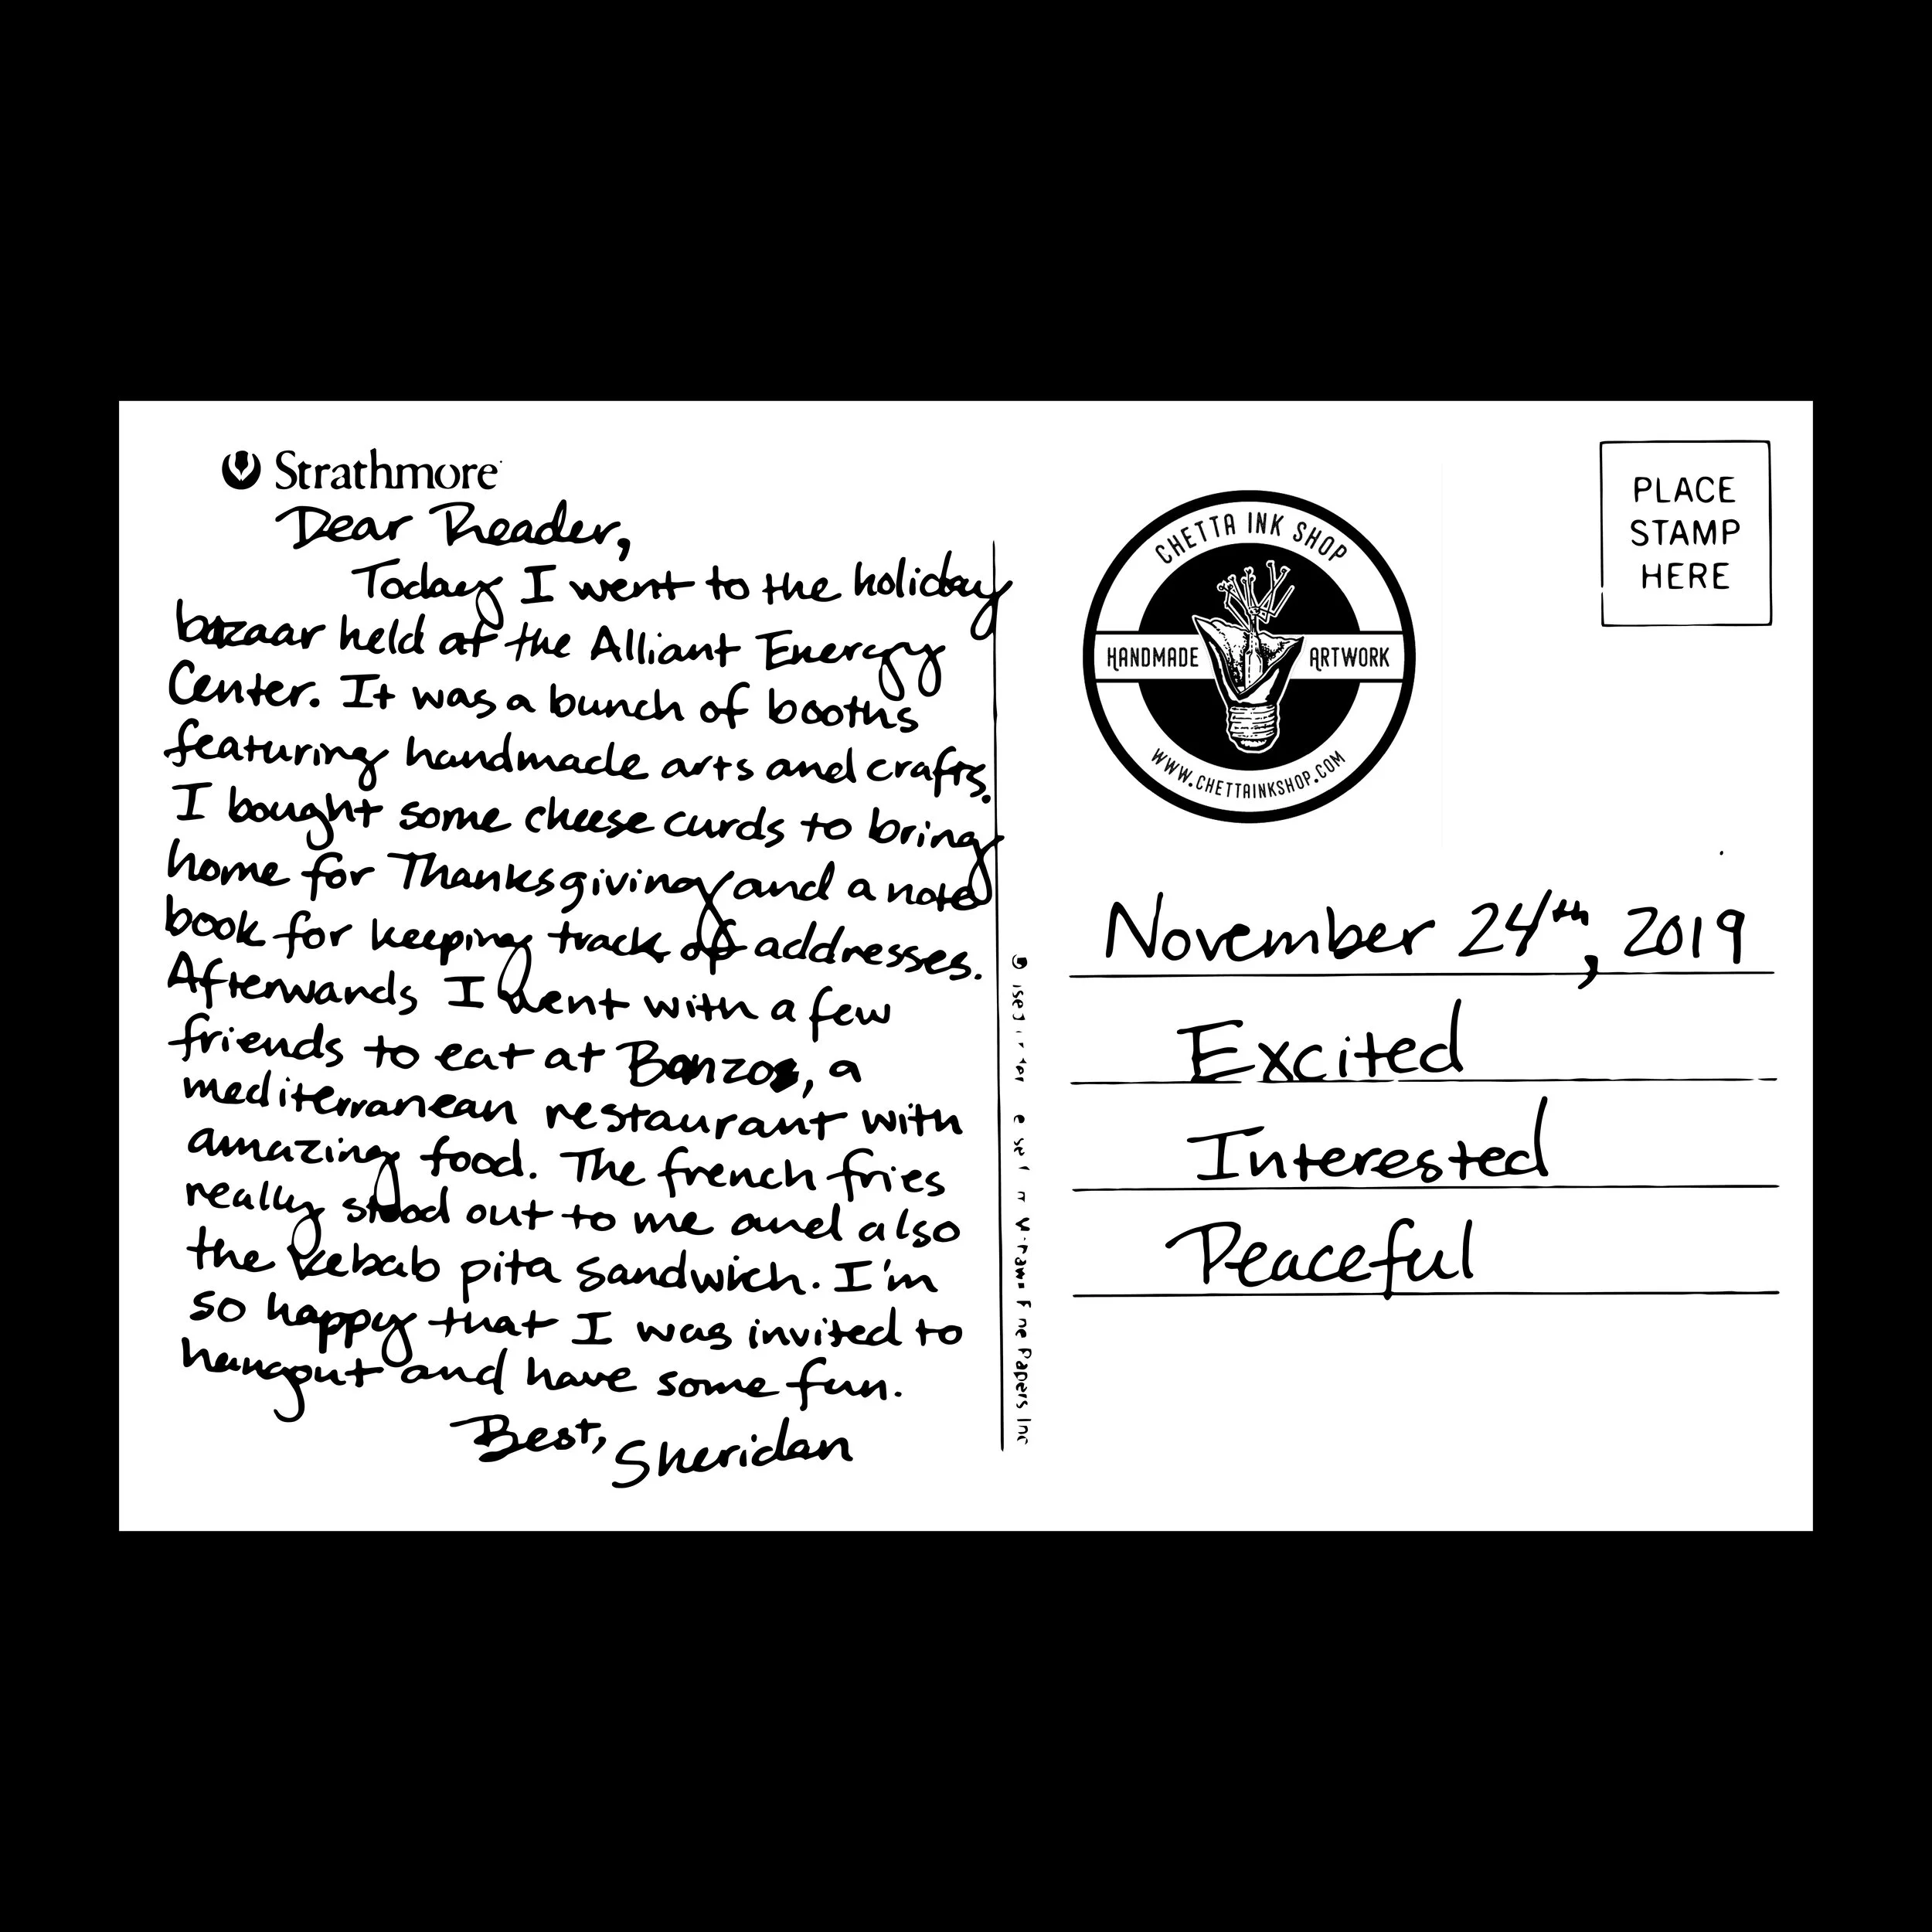 Strathmore
Dear Reader,
Today I went to the holiday
bazaar held at the Alliant Energy
Center. It was a bunch of booths
featuring handmade arts and crafts.
I bought some cheese curds to bring
home for Thanksgiving and a note
book for keeping track of addresses.
Afterwards I went with a few
friends to eat at Banzos, a
mediterranean restaurant with
amazing food. The french fries
really stood out to me and also
the kebab pita sandwich. I'm
so happy that I was invited to
hangout and have some fun.
Best, Sheridan
CHETTA INK SHOP
HANDMADE ARTWORK
WWW.CHETTAINKSHOP.COM
PLACE
STAMP
HERE
November 24th, 2019
Excited
Interested
Peaceful
Papers Inc